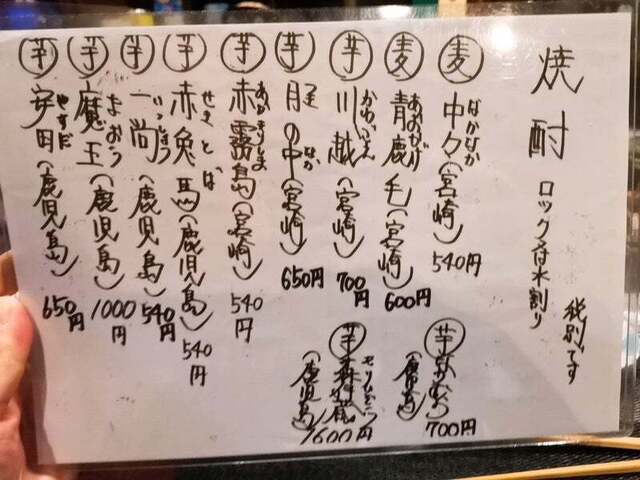 焼酎
ロック
水割り
税別です
麦 中々(宮崎) 540円
なかなか
麦 青鹿毛(宮崎) 600円
あおかげ
芋 川越(宮崎) 700円
芋 月の中(宮崎) 650円
芋 赤霧島(宮崎) 540円
あかきりしま
芋 赤兎馬(鹿児島) 540円
せきとば
芋 一尚(鹿児島) 540円
いっしょう
芋 魔王(鹿児島) 1000円
まおう
芋 安田(鹿児島) 650円
やすだ
芋 700円
芋 森伊蔵 1600円
(鹿児島)